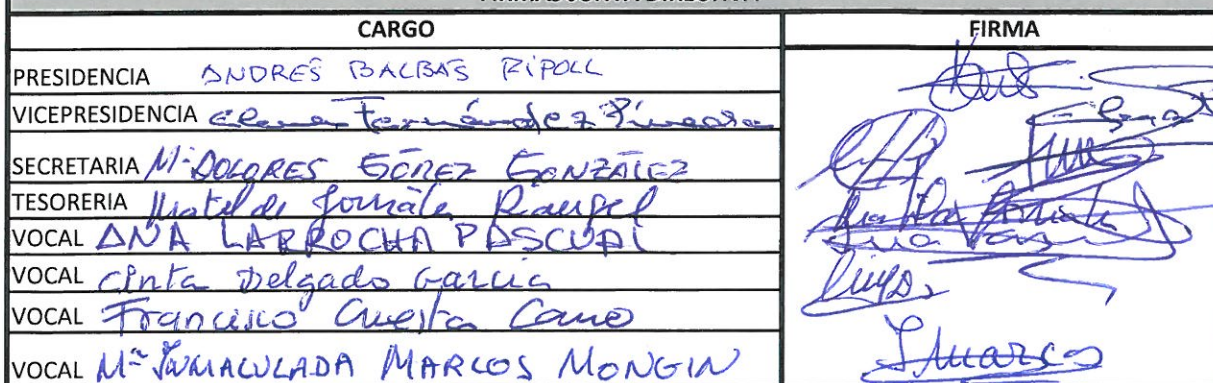 CARGO FIRMA
PRESIDENCIA ANDRÉS BALBÁS RIPOLL
VICEPRESIDENCIA Elena Fernández Pineda
SECRETARIA Mª DOLORES GÓMEZ GONZÁLEZ
TESORERIA Matilde González Rangel
VOCAL ANA LARROCHA PASCUAL
VOCAL Cinta Delgado García
VOCAL Francisco Cuesta Cano
VOCAL Mª INMACULADA MARCOS MONGIN